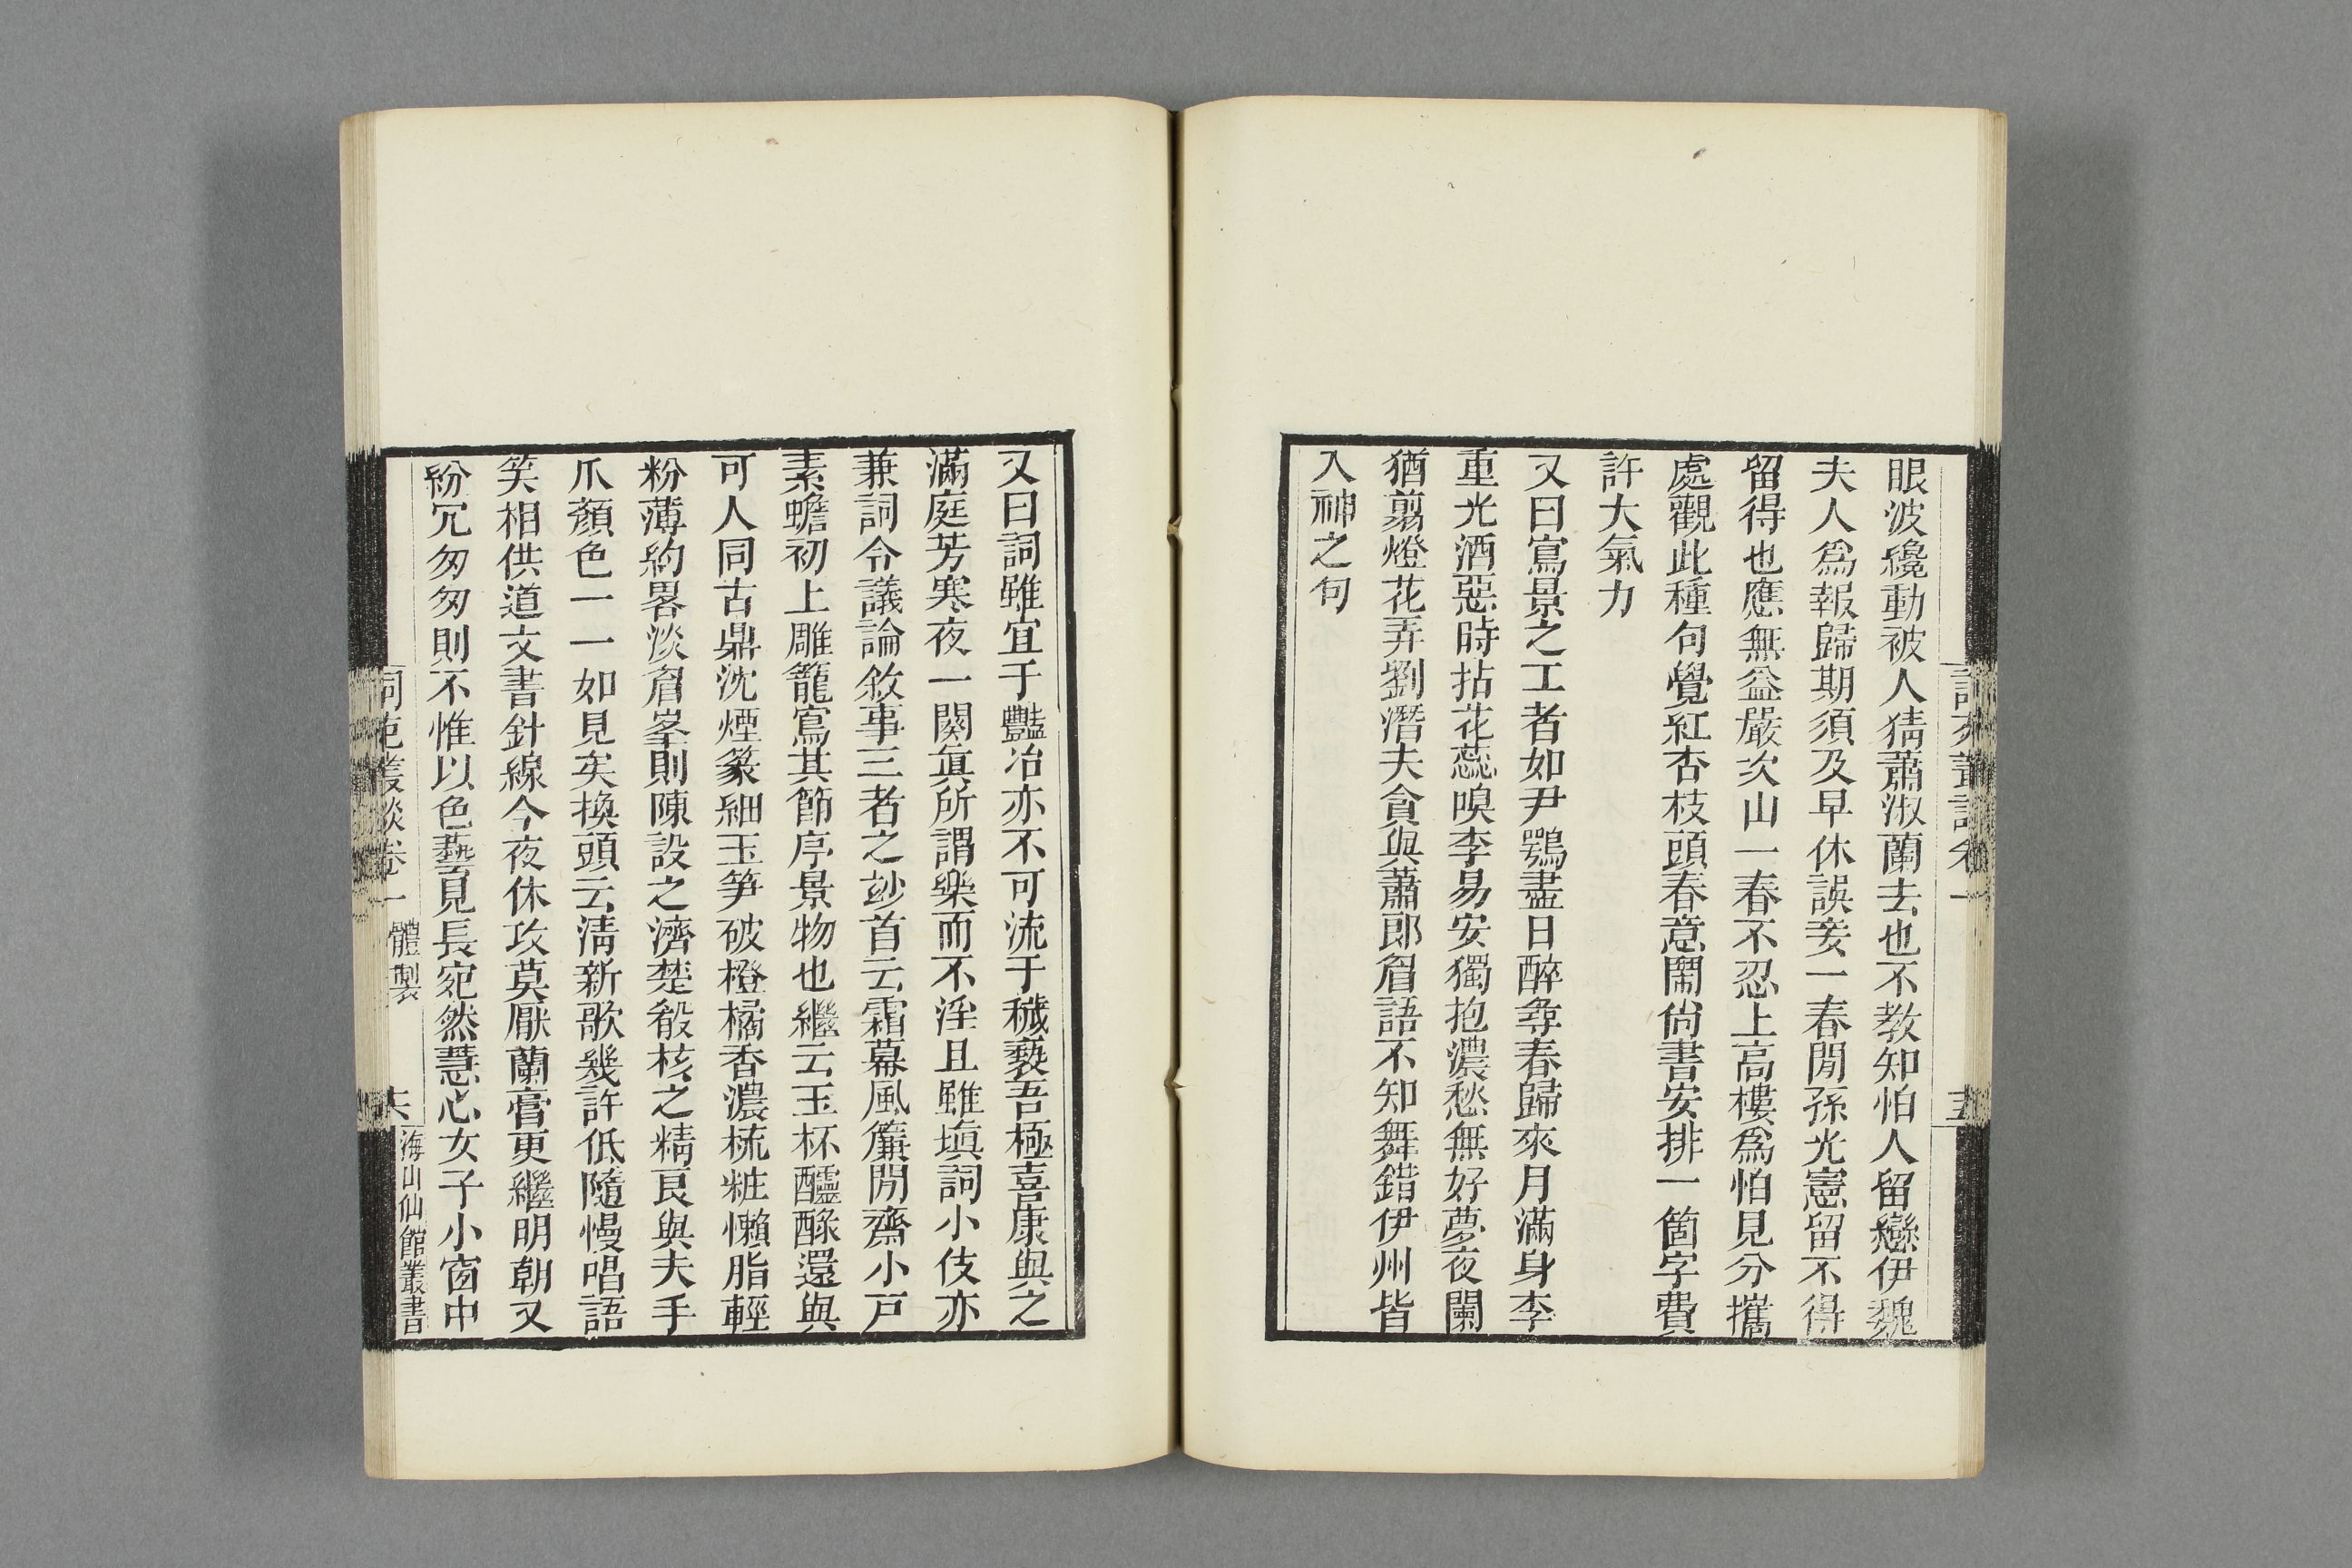 眼波纔動被人猜蕭淑蘭去也不教知怕人留戀伊魏
夫人爲報歸期須及早休誤妾一春閒孫光憲留不得
留得也應無益嚴次山一春不忍上高樓爲怕見分攜
處觀此種句覺紅杏枝頭春意鬧尙書安排一箇字費
許大氣力
又曰寫景之工者如尹鶚盡日醉尋春歸來月滿身李
重光酒惡時拈花蕊嗅李易安獨抱濃愁無好夢夜闌
猶翦燈花弄劉潛夫貪與蕭郞眉語不知舞錯伊州皆
入神之句
又曰詞雖宜于豔冶亦不可流于穢褻吾極喜康與之
滿庭芳寒夜一闋眞所謂樂而不淫且雖塡詞小伎亦
兼詞令議論敘事三者之妙首云霜幕風簾閒齋小戸
素蟾初上雕籠寫其節序景物也繼云玉杯醽醁還與
可人同古鼎沈煙篆細玉筍破橙橘香濃梳粧懶脂輕
粉薄約畧淡眉峯則陳設之濟楚殽核之精良與夫手
爪顏色一一如見矣換頭云淸新歌幾許低隨慢唱語
笑相供道文書針線今夜休攻莫厭蘭膏更繼明朝又
紛冗匆匆則不惟以色藝見長宛然慧心女子小窗中
詞苑叢談卷一
體製
海山仙館叢書